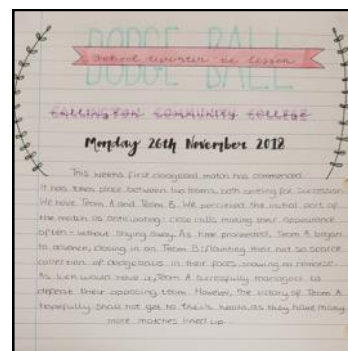 DODGE BALL
school reporter pe lesson
CALLINGTON COMMUNITY COLLEGE
Monday 26th November 2018
This weeks first dodgeball match has commenced.
It has taken place between two teams, both setting for succession.
We have Team A and Team B. We perceived the initial part of
the match as anticipating: close calls making their appearance
often - without shying away. As time proceeded, Team A began
to advance, closing in on Team B: flaunting their not so scarce
collection of dodgeballs in their faces, showing no remorse.
As luck would have it, Team A successfully managed to
defeat their opposing team. However, the victory of Team A
hopefully shall not get to their heads, as they have many
more matches lined up.